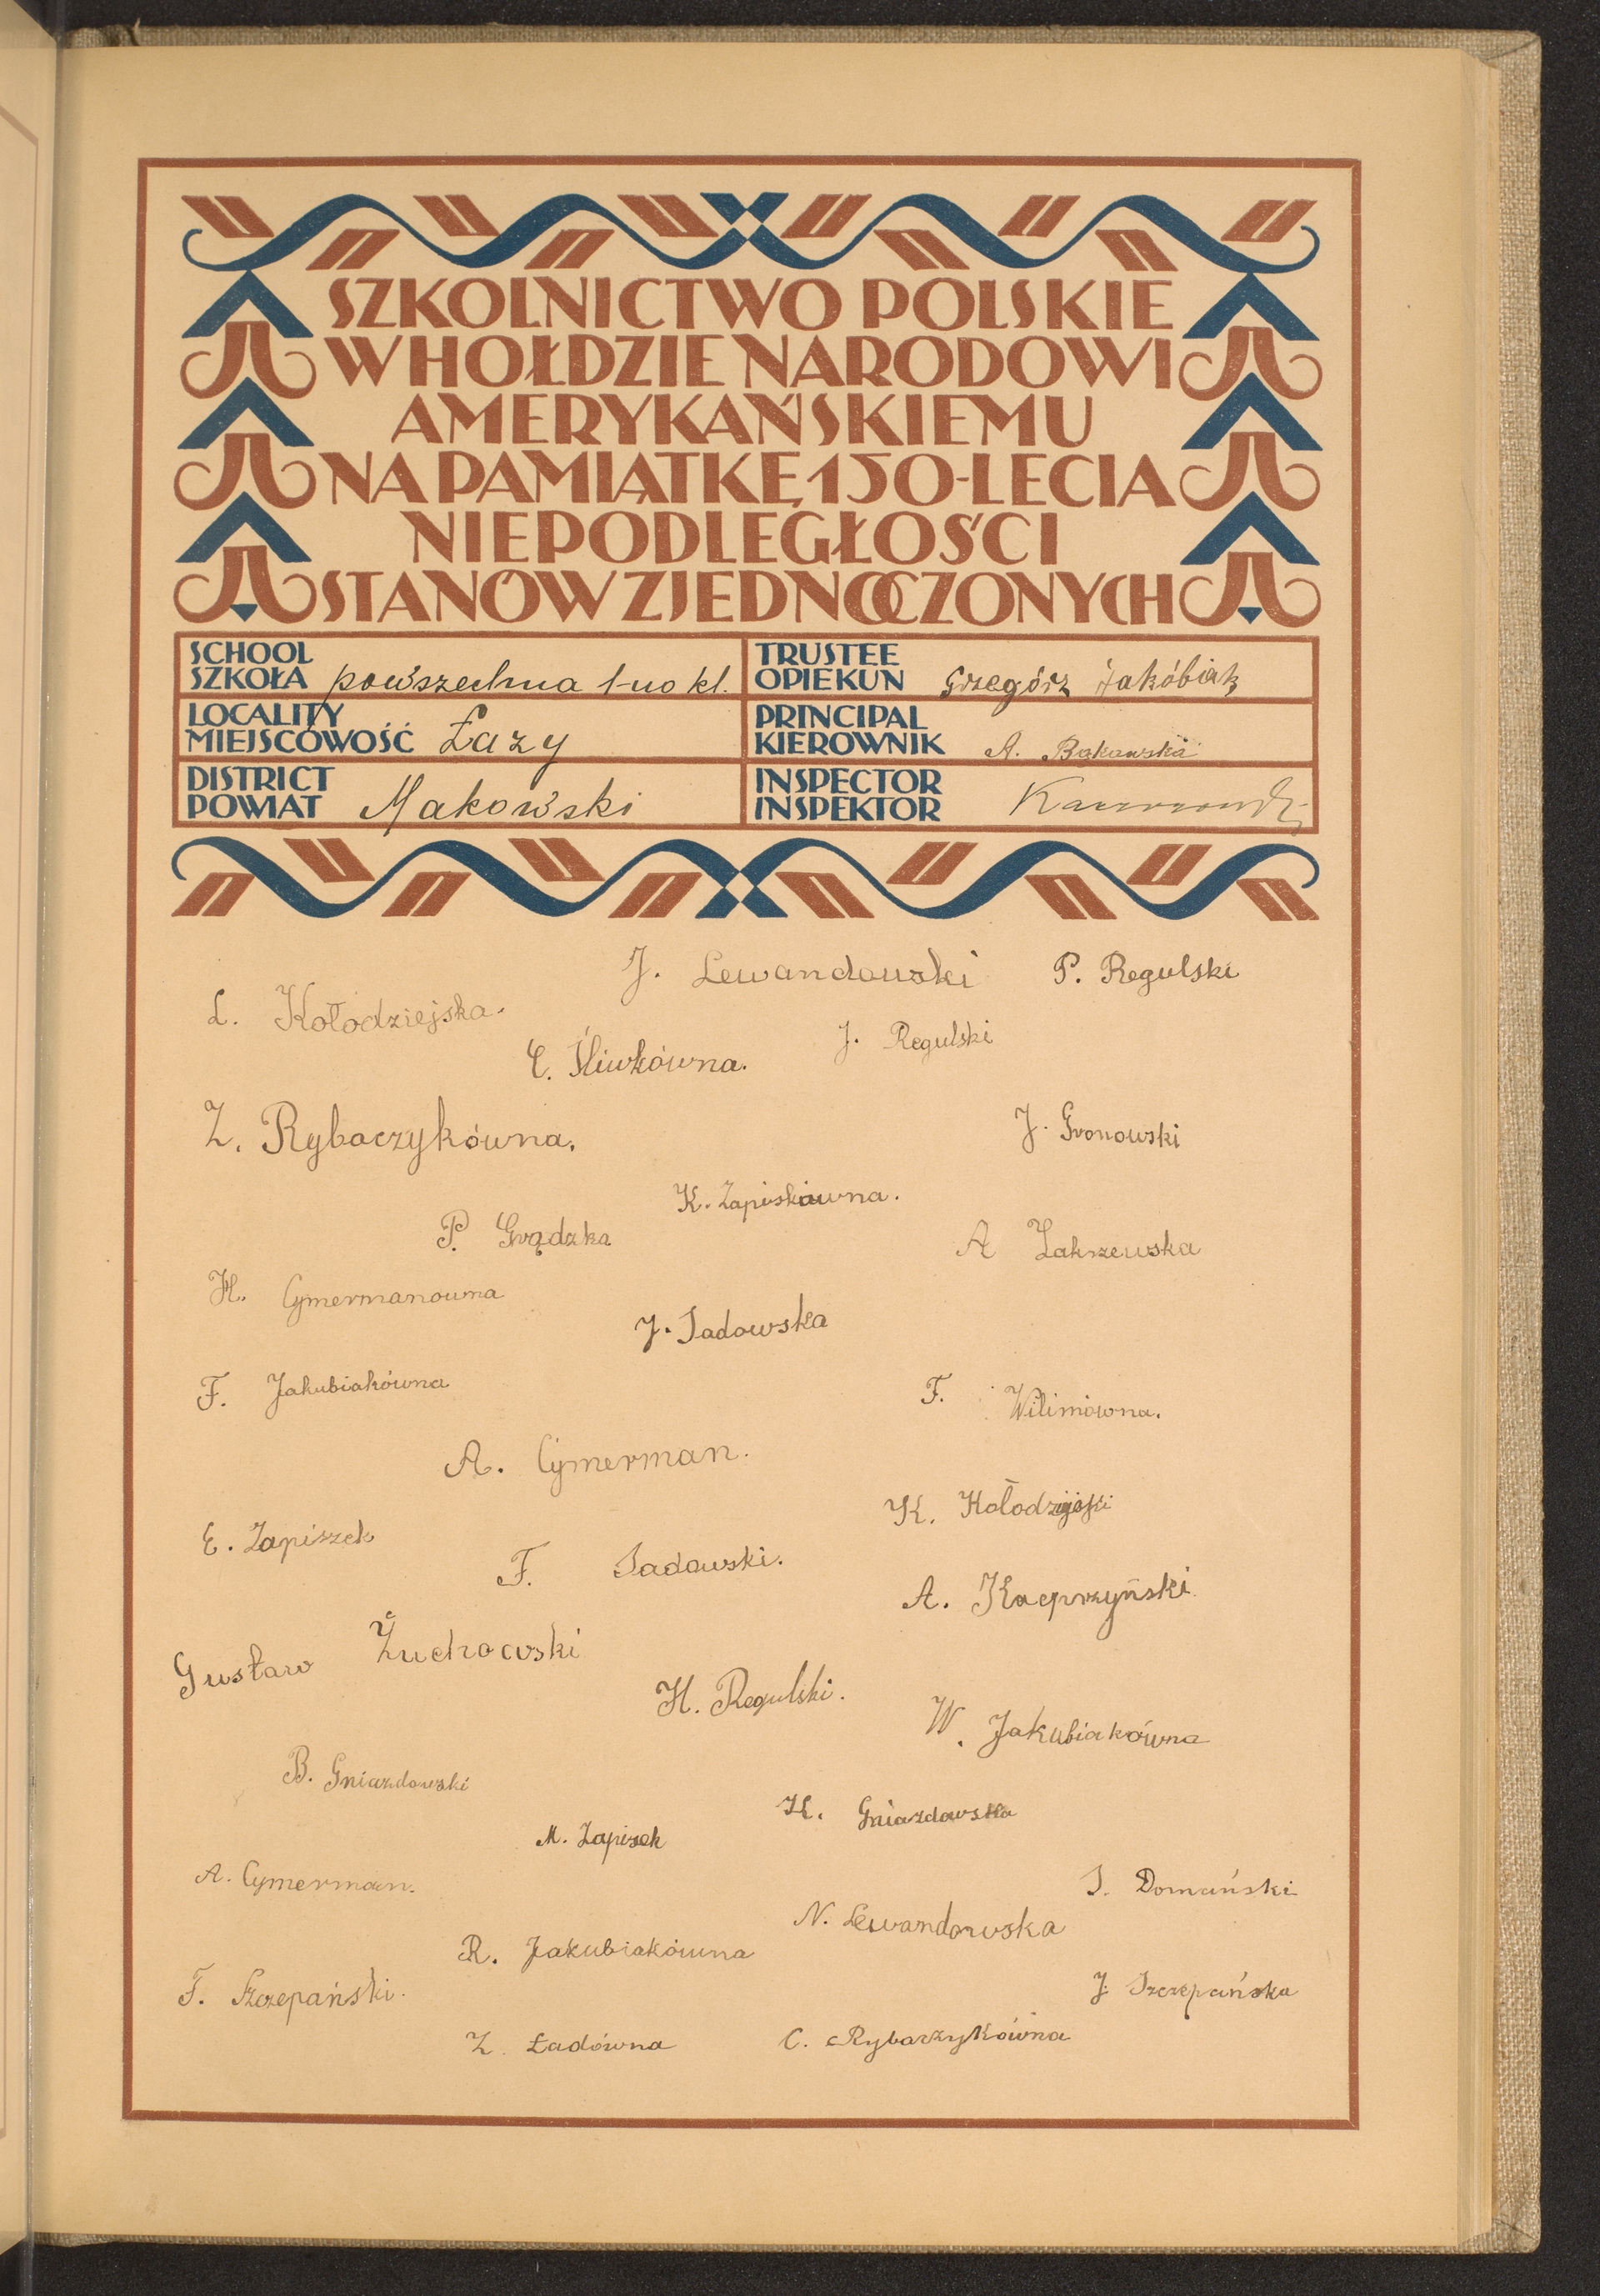 SZKOLNICTWO POLSKIE
W HOŁDZIE NARODOWI
AMERYKAŃSKIEMU
NA PAMIĄTKĘ 150-LECIA
NIEPODLEGŁOŚCI
STANÓW ZJEDNOCZONYCH
SCHOOL
SZKOŁA powszechna 1-no kl.
TRUSTEE
OPIEKUN Grzegórz Jakóbiak
LOCALITY
MIEJSCOWOŚĆ Łazy
PRINCIPAL
KIEROWNIK A. Bąkowska
DISTRICT
POWIAT Makowski
INSPECTOR
INSPEKTOR
J. Lewandowski P. Regulski
L. Kołodziejska.
J. Regulski
C. Śliwkówna.
Z. Rybaczykówna.
J. Gronowski
K. Zapiskówna.
P. Grądzka
A Zakrzewska
H. Cymermanowna
J. Sadowska
F. Jakubiakówna
F. Wilimówna.
A. Cymerman.
K. Kołodziejski
E. Zapiszek
F. Sadowski.
A. Kacprzyński
Gustaw Żuchowski
H. Regulski.
W. Jakubiakówna
B. Gniazdowski
H. Gniazdowska
M. Zapisek
A. Cymerman.
S. Domański
N. Lewandowska
R. Jakubiakówna
F. Szczepański.
J. Szczepańska
Z. Ładówna
C. Rybarzykówna